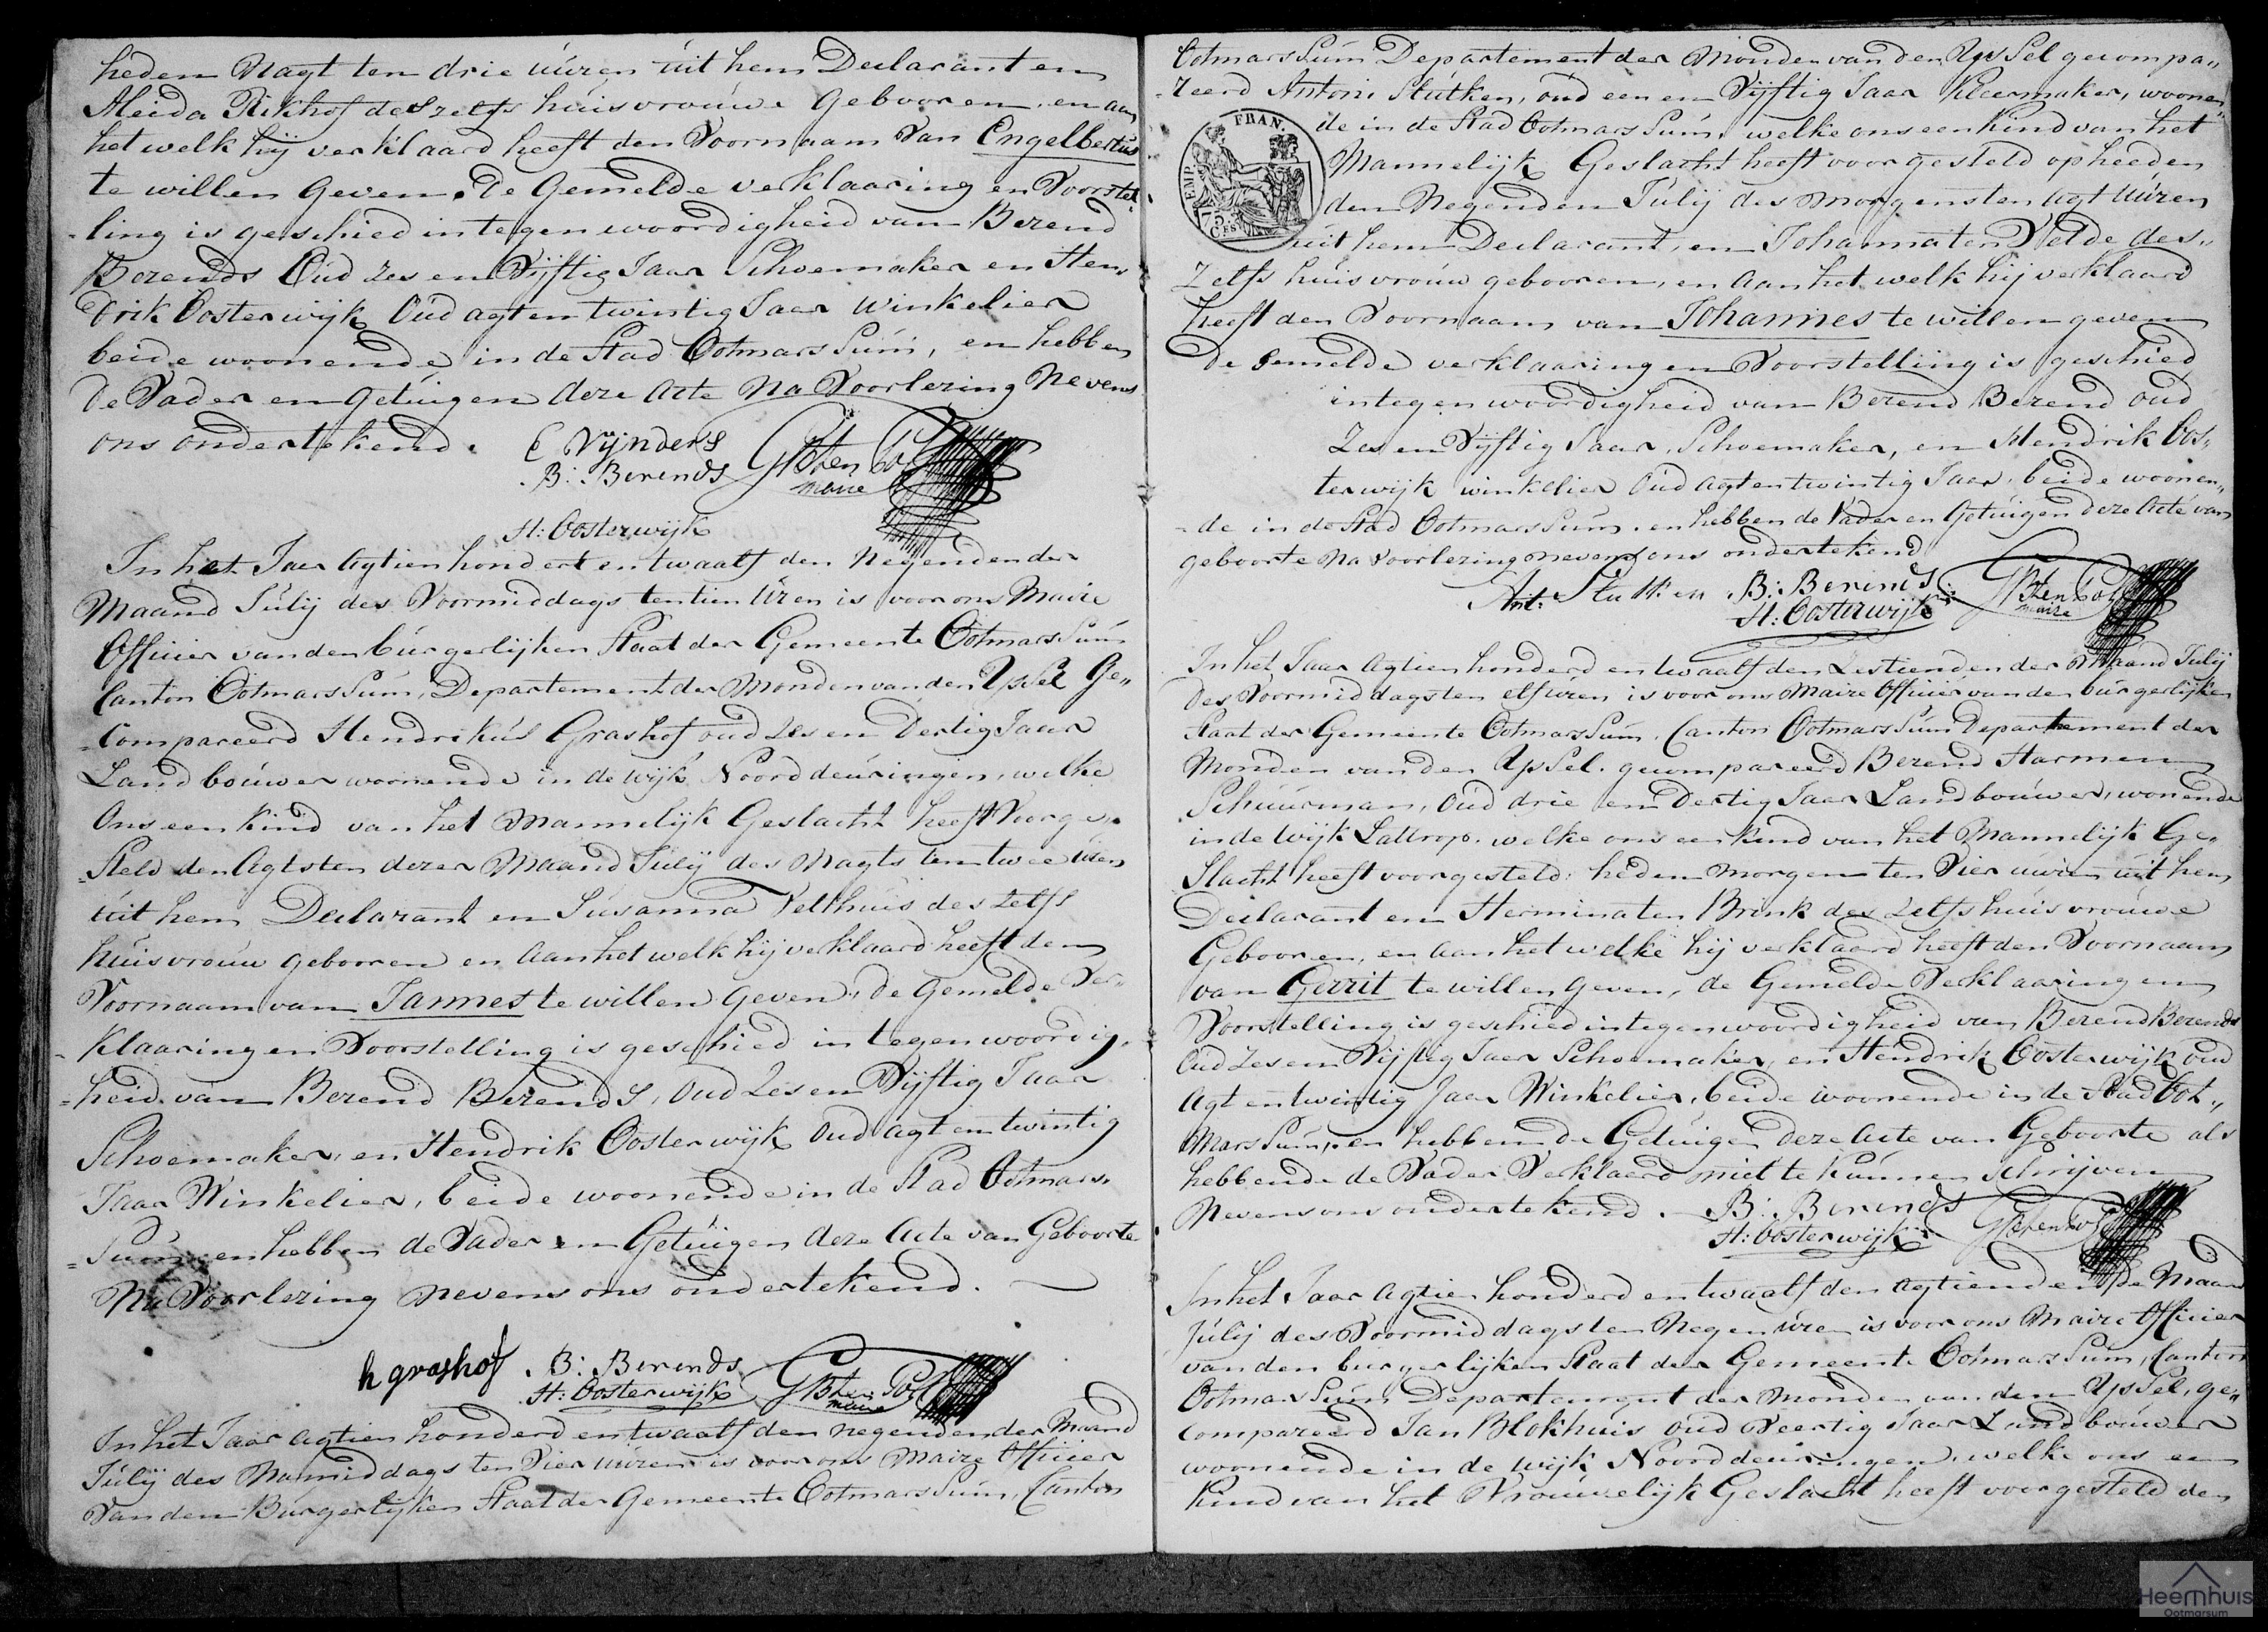 heden Nagt ten drie uúren uit hem Declarant en
Aleida Rikhof deszelfs huisvrouwe Gebooren, en aan
het welk hij verklaard heeft den Voornaam Van Engelbertus
te willen Geven. De Gemelde verklaaring en Voorstel
-ling is geschied in tegenwoordigheid van Berend
Berends Oud zes en Vijftig Jaar Schoemaker en Hen„
drik Oosterwijk Oud agt en twintig Jaar Winkelier
beide woonende in de Stad Ootmarssúm, en hebben
de Vader en Getuigen deze Acte Na Voorlezing Nevens
ons ondertekend.
E Vijnders
B: Berends GB ten Pol
maire
H: Oosterwijk
In het Jaar Agtien hondert en twaalf den Negenden der
Maand Júlij des Voormiddags ten tien Uren is voor ons Maire
Officier van den búrgerlijken Staat der Gemeente Ootmarssúm
Canton Ootmarssúm, Departement der Monden van den Ijssel Ge„
-Compareerd Hendrikús Grashof oud Zes en Dertig Jaar
Landboúwer woonende in de wijk Noorddeúringen, welke
Ons een kind van het Mannelijk Geslacht heeft Voorge„
-steld den Agtsten dezer Maand Júlij des Nagts ten twee úren
úit hem Declarant en Súsanna Velthuis deszelfs
húisvroúw gebooren en aan het welk hij verklaard heeft den
Voornaam van Jannes te willen Geven. de Gemelde Ver„
-klaaring en Voorstelling is geschied in tegenwoordig„
=heid van Berend Berends, Oud Zes en Vijftig Jaar
Schoemaker, en Hendrik Oosterwijk Oud agt en twintig
Jaar Winkelier, beide woonende in de Stad Ootmars„
=súm, en hebben de Vader en Getúigen deze Acte van Geboorte
Na Voorlezing Nevens ons ondertekend.
h grashof B: Berends GB ten Pol
H: Oosterwijk maire
In het Jaar agtien honderd en twaalf den negenden der Maand
Júlij des Namiddags ten Vier uúren is voor ons Maire Officier
Van den Búrgerlijken Staat der Gemeente Ootmarssúm, Canton
Ootmarssúm Departement der Monden van den Ijssel gecompa„
-reerd Antoni Stútken, oúd een en Vijftig Jaar Kleermaker, woonen„
FRAN.
EMP.
75
CES
de in de Stad Ootmarssúm, welke ons een Kind van het
Mannelijk Geslacht heeft voorgesteld op heeden
den Negenden Júlij des Morgens ten Agt Uúren
uit hem Declarant, en Johanna ten Velde des„
Zelfs huisvroúw gebooren, en aan het welk hij verklaard
heeft den Voornaam van Johannes te willen geven
De Gemelde verklaaring en Voorstelling is geschied
in tegenwoordigheid van Berend Berend Oud
Zes en Vijftig Jaar, Schoemaker, en Hendrik Oos„
terwijk winkelier Oud Agt en twintig Jaar, beide woonen„
-de in de Stad Ootmarssúm, en hebben de Vader en Getúigen deze Acte van
geboorte Na Voorlezing nevens ons ondertekend
Ant: Stutken B: Berends GB ten Pol
H: Oosterwijk maire
In het Jaar Agtien honderd en twaalf den Zestienden der Maand Julij
des Voormiddags ten elf uren is voor ons Maire Officier van den búrgerlijken
Staat der Gemeente Ootmarssúm, Canton Ootmarssúm Departement der
Monden van den Ijssel. gecompareerd Berend Harmen
Schúúrman, Oúd drie en Dertig Jaar Landboúwer, wonende
in de wijk Lattrop. welke ons een kind van het Mannelijk Ge„
slacht heeft voorgesteld: heden Morgen ten Vier uúren úit hem
Declarant en Hermina ten Brink deszelfs húisvrouwe
Gebooren, en aan het welke hij verklaard heeft den Voornaam
van Gerrit te willen geven, de Gemelde Verklaaring en
Voorstelling is geschied in tegenwoordigheid van Berend Berends
Oúd Zes en Vijftig Jaar Schoemaker, en Hendrik Oosterwijk Oúd
Agt en twintig Jaar Winkelier, beide woonende in de Stad Oot„
marssúm, en hebben de Getúigen deze Acte van Geboorte als
hebbende de Vader Verklaerd niet te kúnnen schrijven
Nevens ons ondertekend. B: Berends
H: Oosterwijk GB ten Pol
In het Jaar Agtien honderd en twaalf den agtienden de Maand
Júlij des Voormiddags ten Negen úren is voor ons Maire Officier
van den búrgerlijken Staat der Gemeente Ootmarssúm, Canton
Ootmarssúm Departement der Monden van den Ijssel, ge„
compareerd Jan Blokhúis Oúd Veertig Jaar Landboúwer
woonende in de wijk Noorddeúringen, welke ons een
kind van het Vroúwelijk Geslacht heeft voorgesteld den
Heemhuis
Ootmarsum